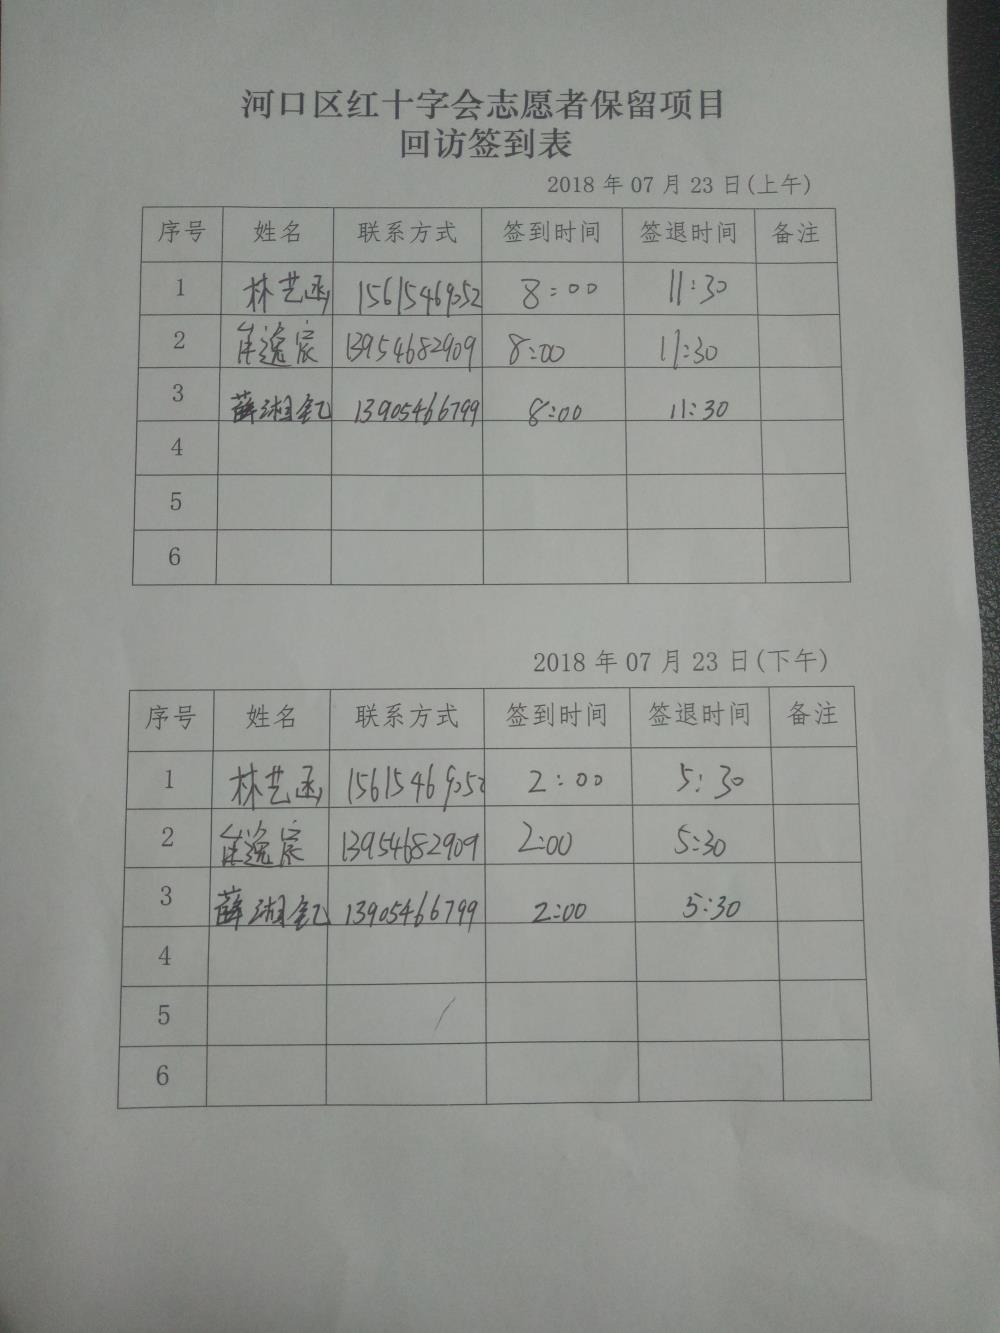 河口区红十字会志愿者保留项目
回访签到表
2018 年 07 月 23 日(上午)
序号 姓名 联系方式 签到时间 签退时间 备注
1 林艺函 15615469052 8:00 11:30
2 崔逸宸 13954682909 8:00 11:30
3 薛湘钇 13905466799 8:00 11:30
4
5
6
2018 年 07 月 23 日(下午)
序号 姓名 联系方式 签到时间 签退时间 备注
1 林艺函 15615469052 2:00 5:30
2 崔逸宸 13954682909 2:00 5:30
3 薛湘钇 13905466799 2:00 5:30
4
5
6